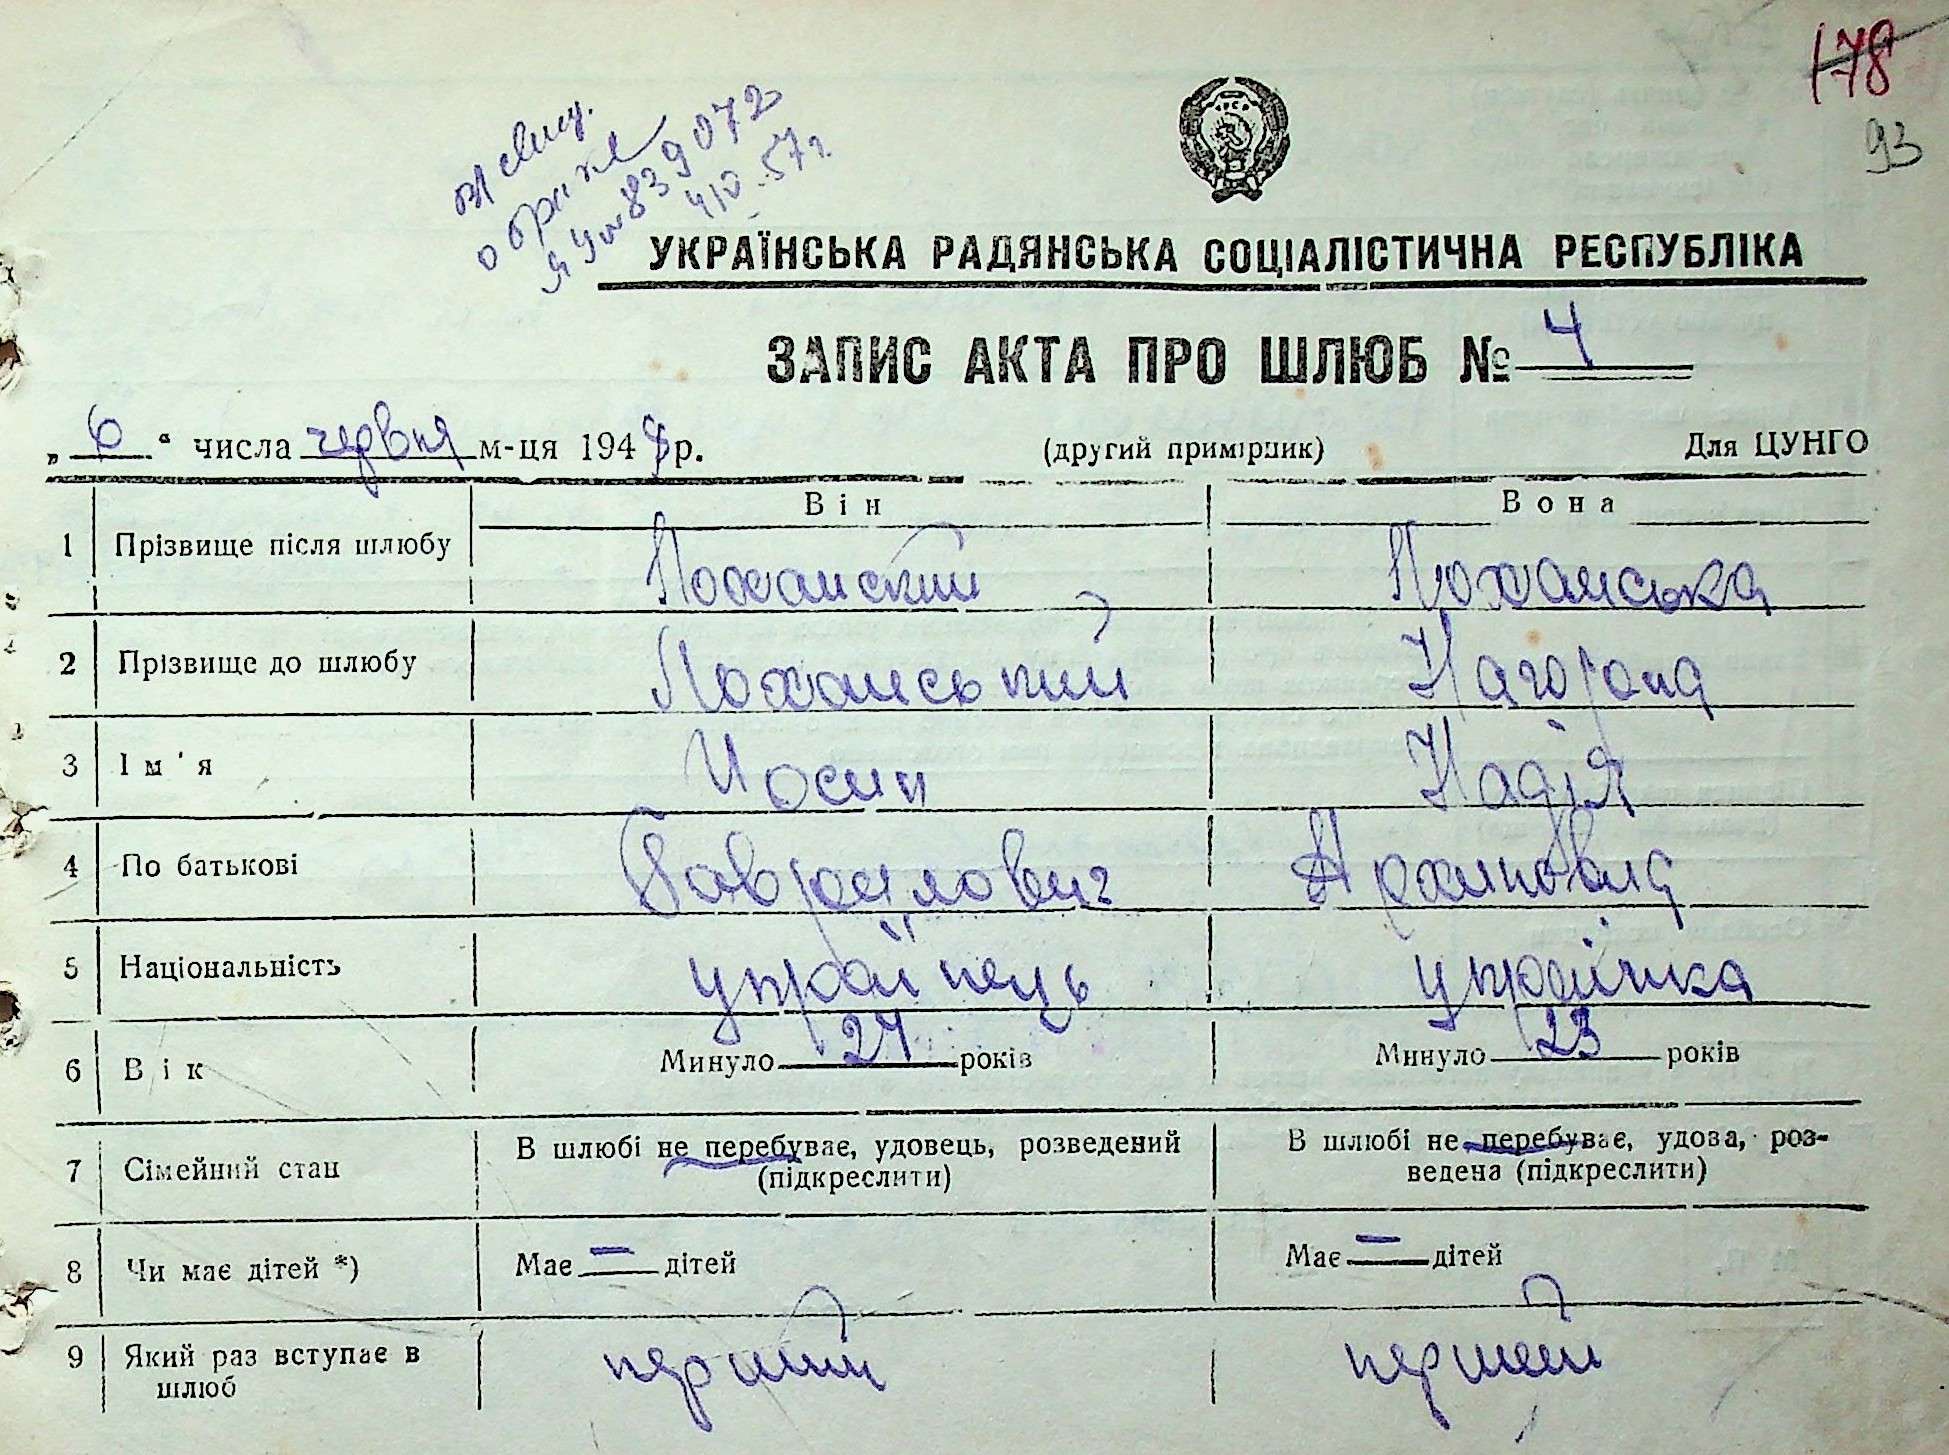 178
93
о браке
839072
4/V-57г.
УКРАЇНСЬКА РАДЯНСЬКА СОЦІАЛІСТИЧНА РЕСПУБЛІКА
ЗАПИС АКТА ПРО ШЛЮБ № 4
„ 6 “ числа червня м-ця 1948 р. (другий примірник) Для ЦУНГО
Він Вона
1 Прізвище після шлюбу Лоханский Лоханська
2 Прізвище до шлюбу Лоханський Нагорна
3 Ім'я Иосип Надія
4 По батькові Гаврилович Архиповна
5 Національність українець українка
6 Вік Минуло 24 років Минуло 23 років
7 Сімейний стан В шлюбі не перебуває, удовець, розведений (підкреслити) В шлюбі не перебуває, удова, роз-
ведена (підкреслити)
8 Чи має дітей *) Має — дітей Має — дітей
9 Який раз вступає в шлюб перший перший